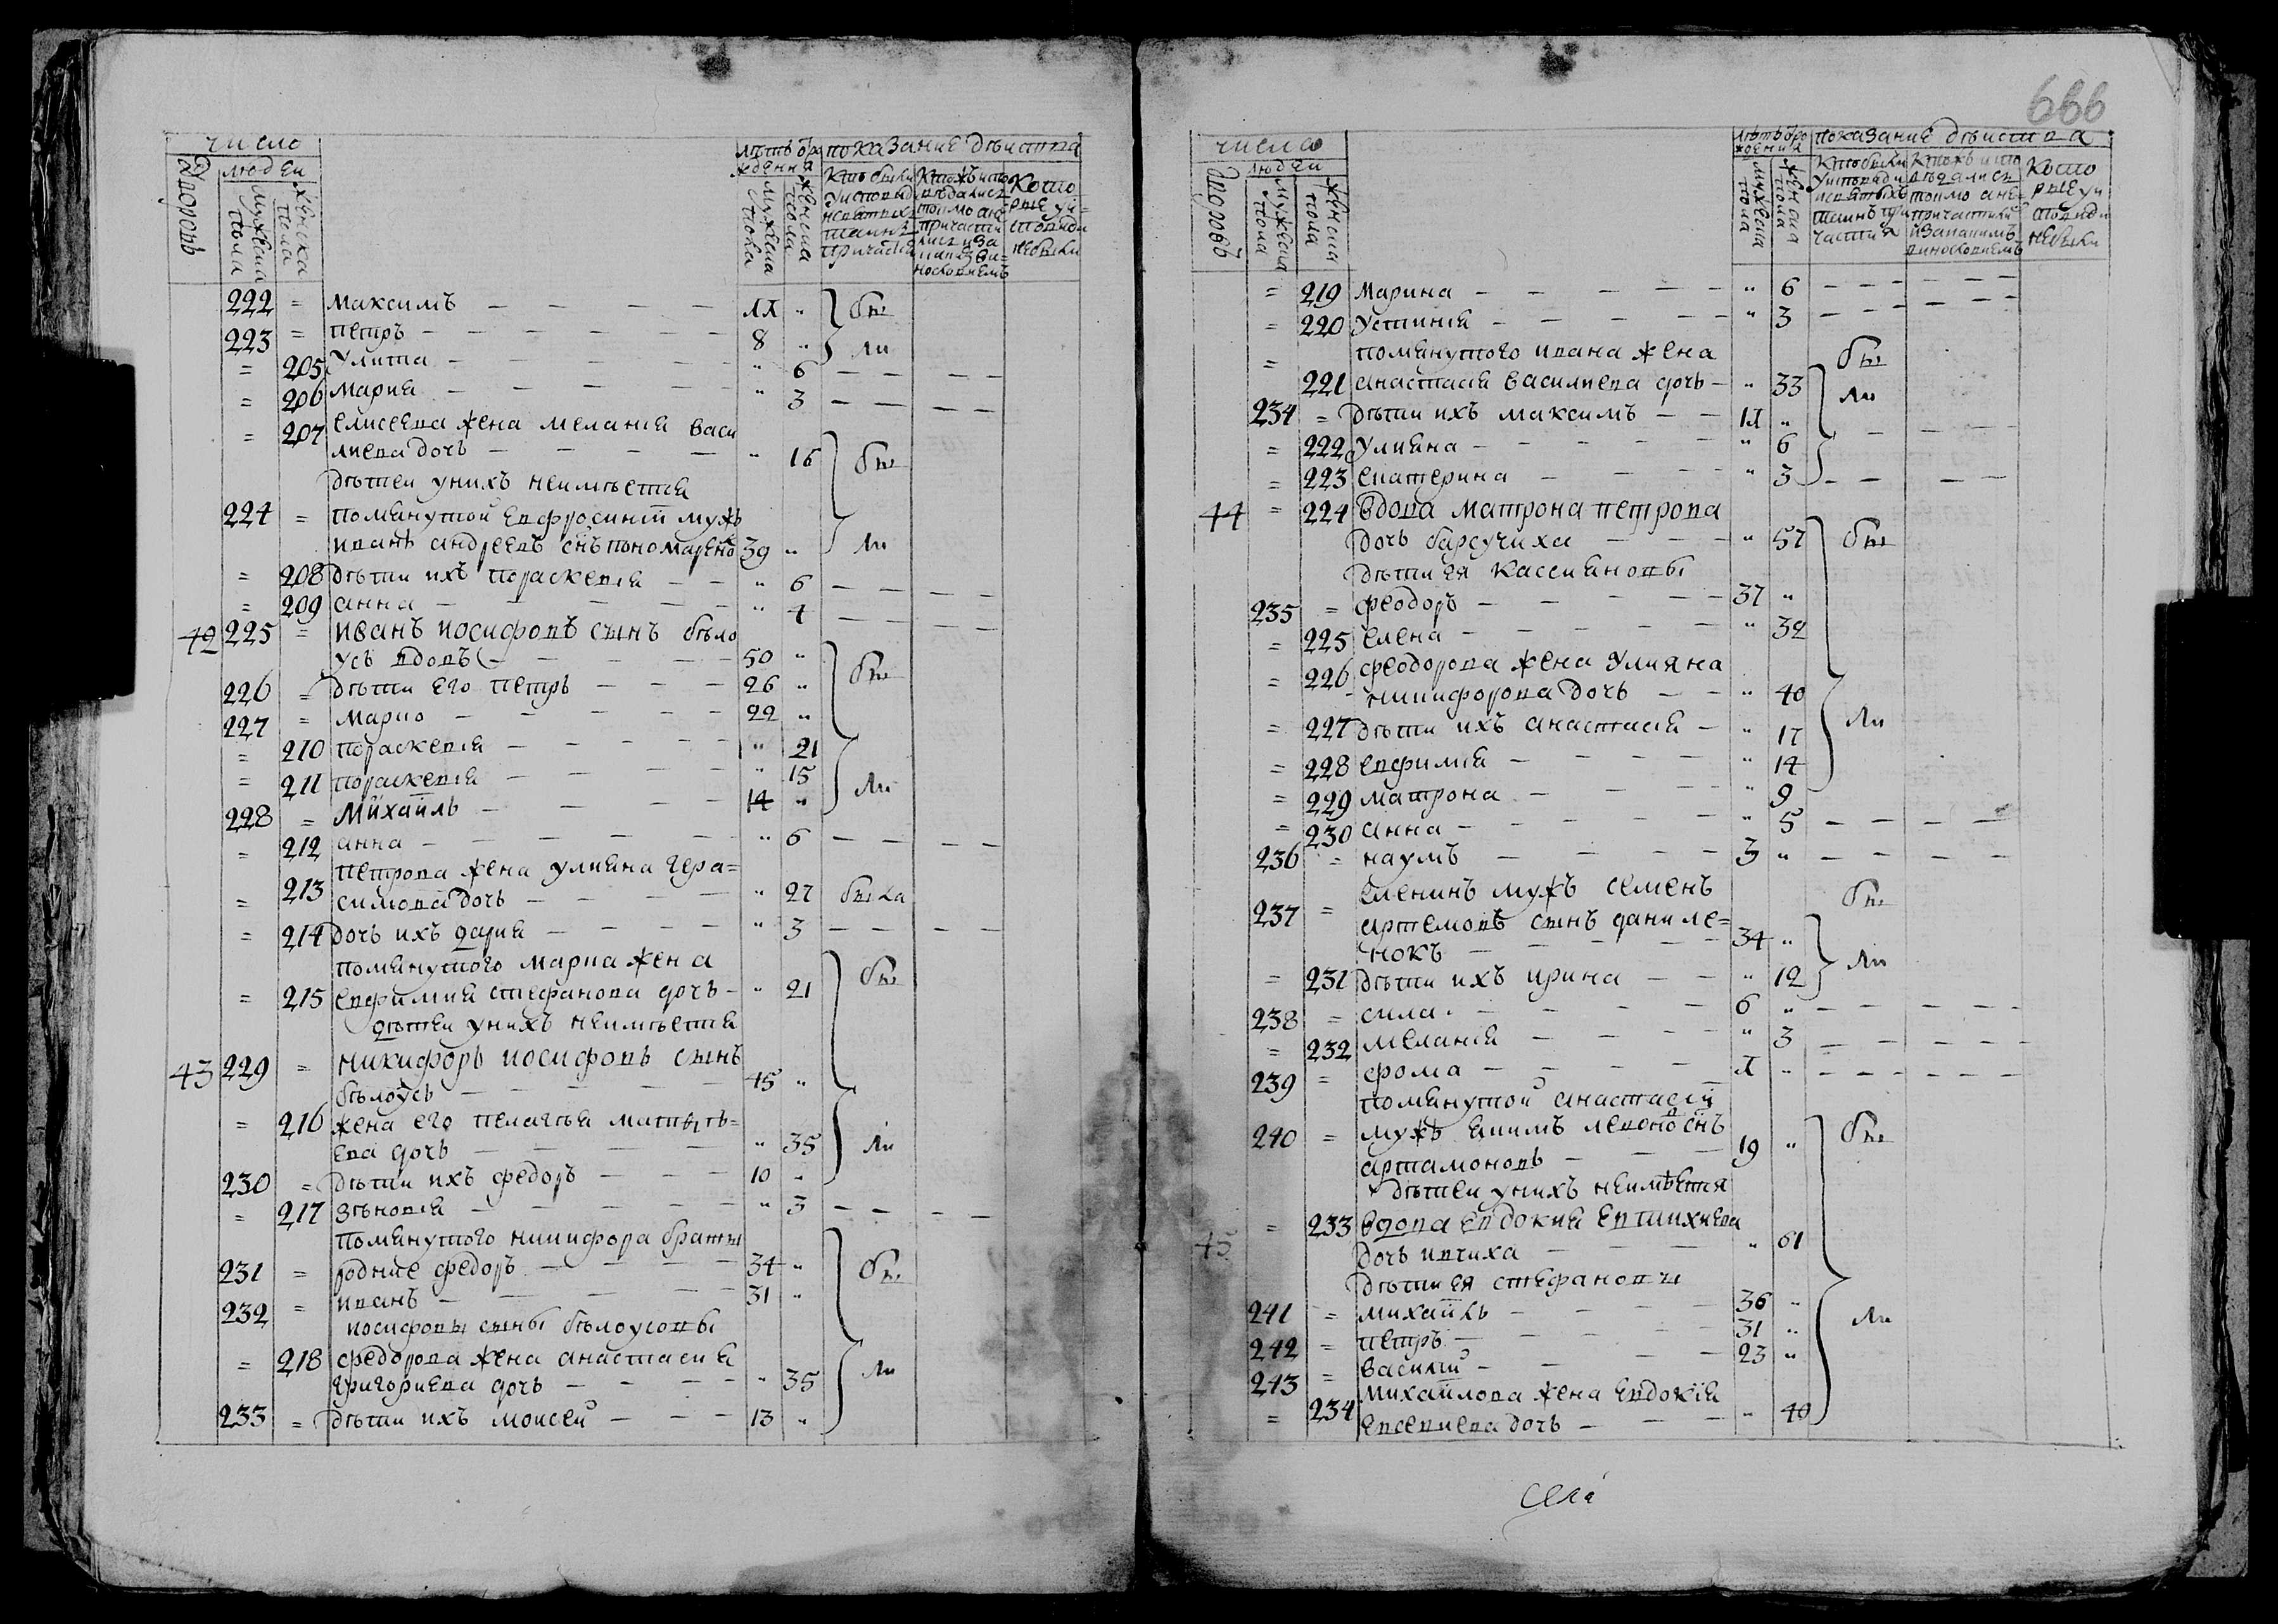 число
Дворовъ
людеи
мужеска пола
женска пола
лѣтъ от рождения
мужеска пола
женска пола
показание дѣиства
Кто были у исповѣди и святыхъ таинъ причастия
Кто жъ исповедались токмо а не причастились и за каким виновностиемъ
Которые у исповѣди не были
222 = максимъ — 11 „ бы
223 = петръ — 8 „ ли
= 205 Улита — „ 6 — —
= 206 Мария — „ 3 — —
= 207 елисеева жена мелания васи
лиева дочь — „ 16 бы
дѣтеи у нихъ неимѣется
224 = помянутой евфросинїи мужъ
иванъ андреевъ снъ пономаренко 39 „ ли
= 208 дѣти ихъ параскевия — „ 6 — —
= 209 анна — „ 4 — —
42 225 = иванъ иосифовъ сынъ бѣло
усъ вдовъ — 50 „
226 = дѣти его петръ — 26 „ бы
227 = марко — 22 „
= 210 параскевия — „ 21
= 211 параскевия — „ 15
228 = Михаилъ — 14 „ ли
= 212 анна — „ 6 — —
петрова жена улияна гера=
= 213 симова дочь — „ 27 была
= 214 дочь ихъ дария — „ 3 — —
помянутого марка жена
= 215 евфимия стефанова дочь — „ 21 бы
дѣтеи у нихъ неимѣется
43 229 = никифоръ иосифовъ сынъ
бѣлоусъ — 45 „
= 216 жена его пелагея матвѣ=
ева дочь — „ 35 ли
230 = дѣти ихъ федоръ — 10 „
= 217 зѣновия — „ 3 — —
помянутого никифора браты
231 = родние федоръ — 34 „ бы
232 = иванъ — 31 „
иосифовы сыны бѣлоусовы
= 218 федорова жена анастасия
григориева дочь — „ 35 ли
233 = дѣти ихъ моисей — 13 „
666
число
Дворовъ
людеи
мужеска пола
женска пола
лѣтъ от рождения
мужеска пола
женска пола
показание дѣиства
Кто были у исповѣди и святыхъ таинъ причастия
Кто жъ исповедались токмо а не причастились и за каким виновностиемъ
Которые у исповѣди не были
= 219 Марина — „ 6 — —
= 220 устиния — „ 3 — —
= помянутого ивана жена бы
221 анастасия василиева дочь — „ 33 ли
234 = дѣти ихъ максимъ — 11 „
= 222 улияна — „ 6 — —
= 223 екатерина — „ 3 — —
44 = 224 Вдова матрона петрова
дочь барсучиха — „ 57 бы
дѣти ея кассияновы
235 = феодоръ — 37 „
= 225 елена — „ 32
= 226 феодорова жена улияна
никифорова дочь — „ 40
= 227 дѣти ихъ анастасия — „ 17 ли
= 228 евфимия — „ 14
= 229 матрона — „ 9
= 230 анна — „ 5 — —
236 = наумъ — 3 „ — —
еленинъ мужъ семенъ бы
237 = артемовъ сынъ даниле=
нокъ — 34 „
= 231 дѣти ихъ ирина — „ 12 ли
238 = сила — 6 „ — —
= 232 мелания — „ 3 — —
239 = фома — 1 „ — —
помянутой анастасїи
240 = мужъ якимъ левоновъ снъ бы
артамоновъ — 19 „
дѣтеи у нихъ неимѣется
45 = 233 Вдова евдокия евтихиева
дочь ивчиха — „ 61
дѣти ея стефановы
241 = михаилъ — 36 „ ли
242 = петръ — 31 „
243 = василий — 23 „
михаилова жена евдокия
= 234 евсевиева дочь — „ 40
села